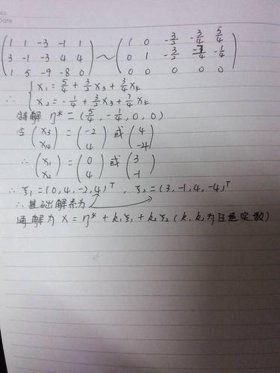 ( 1 1 -3 -1 1 ) ~ ( 1 0 -3/2 -3/4 5/4 )
( 3 -1 -3 4 4 ) ( 0 1 -3/2 -7/4 -1/4 )
( 1 5 -9 -8 0 ) ( 0 0 0 0 0 )
{ x₁ = 5/4 + 3/2 x₃ + 3/4 x₄
x₂ = -1/4 + 3/2 x₃ + 7/4 x₄
特解 η* = (5/4, -1/4, 0, 0)
令 (x₃ x₄) = (-2 4) 或 (4 -4)
∴ (x₁ x₂) = (0 4) 或 (3 -1)
∴ ξ₁ = (0, 4, -2, 4)ᵀ, ξ₂ = (3, -1, 4, -4)ᵀ
∴ 基础解系为
通解为 x = η* + k₁ξ₁ + k₂ξ₂ (k₁ k₂ 为任意定数)